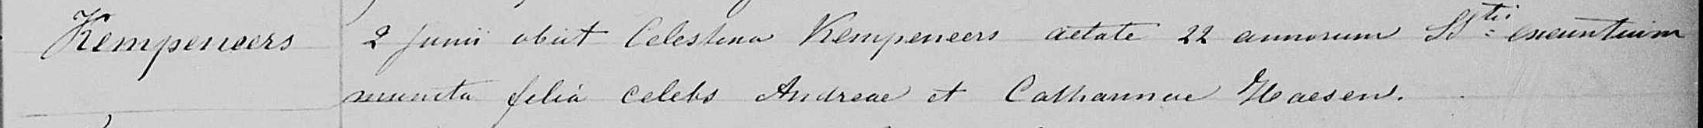 Kempeneers 2 Junii obiit Celestina Kempeneers aetate 22 annorum SStis exeuntium
munita filia celebs Andreae et Catharinae Haesen.